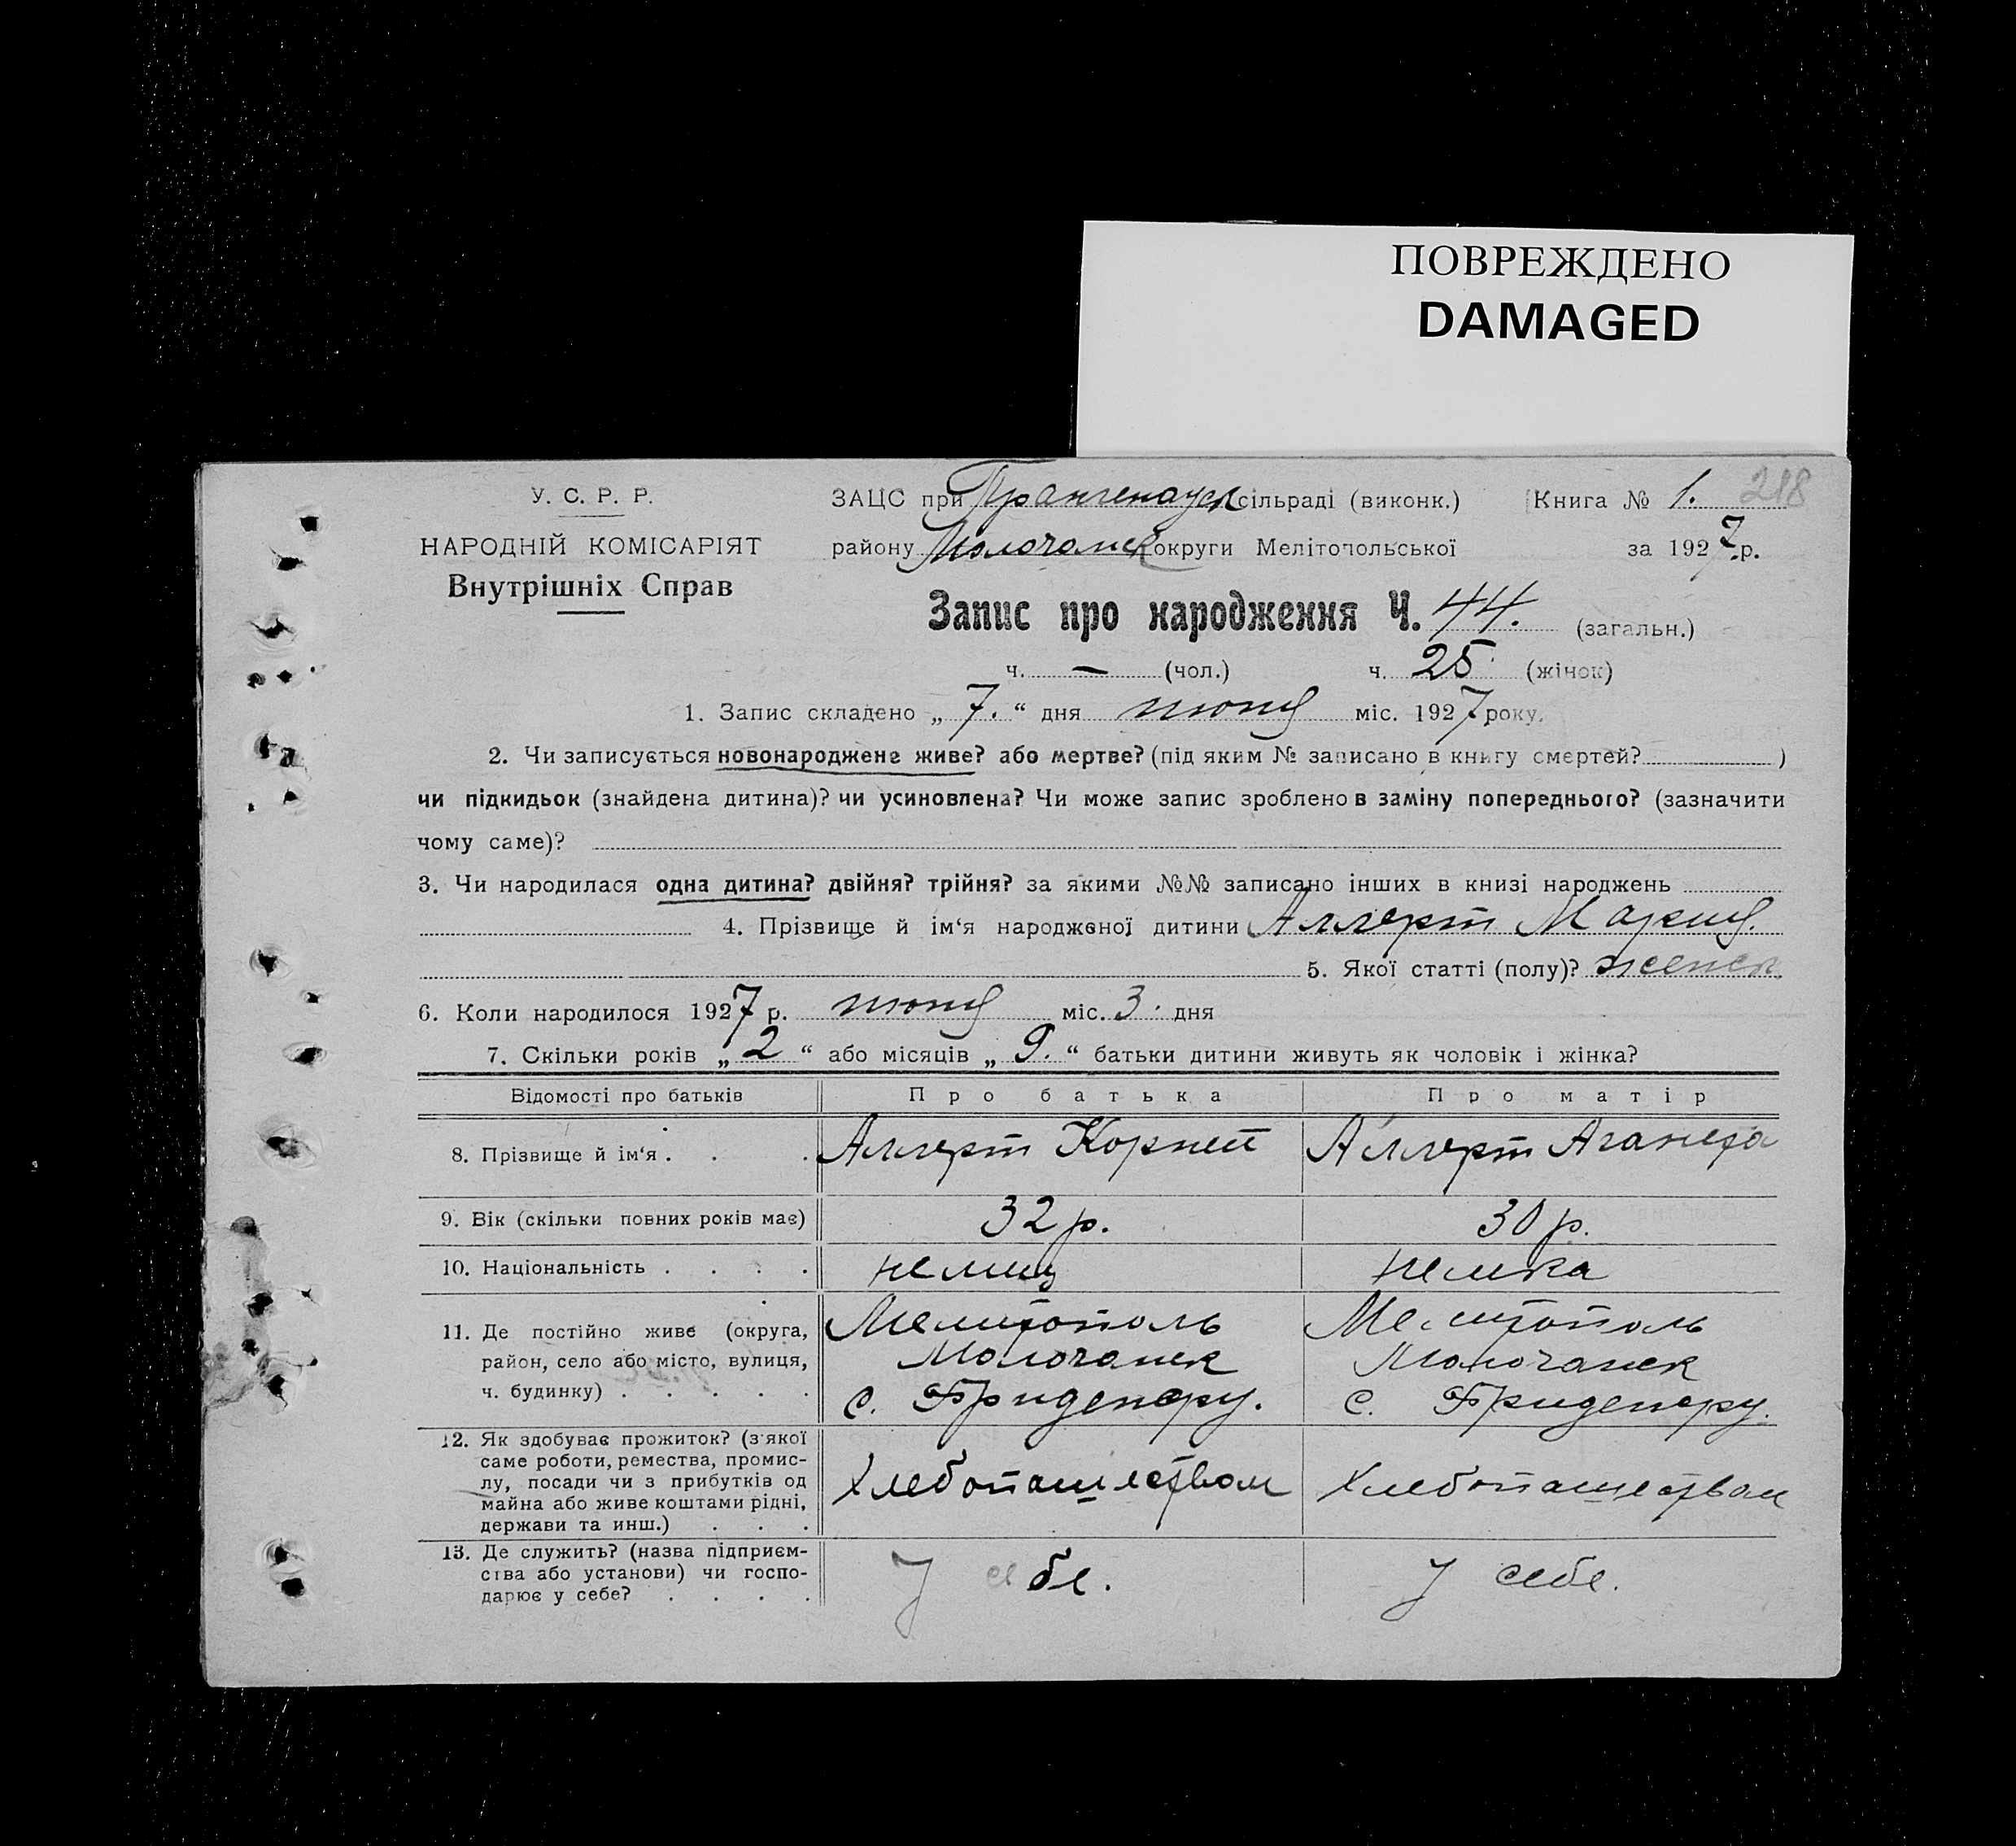 ПОВРЕЖДЕНО
DAMAGED
У. С. Р. Р.
НАРОДНІЙ КОМІСАРІЯТ
Внутрішніх Справ
ЗАЦС при Пранgenауск сільраді (виконк.) Книга № 1. 218
району Молочанск округи Мелітопольської за 1927 р.
Запис про народження Ч. 44. (загальн.)
ч. — (чол.) ч. 25 (жінок)
1. Запис складено „ 7. “ дня июня міс. 1927 року.
2. Чи записується новонароджене живе? або мертве? (під яким № записано в книгу смертей? )
чи підкидьок (знайдена дитина)? чи усиновлена? Чи може запис зроблено в заміну попереднього? (зазначити
чому саме)?
3. Чи народилася одна дитина? двійня? трійня? за якими №№ записано інших в книзі народжень
4. Прізвище й ім‘я народженої дитини Аллерт Мария.
5. Якої статті (полу)? женск.
6. Коли народилося 1927 р. июня міс. 3. дня
7. Скільки років „ 2 “ або місяців „ 9. “ батьки дитини живуть як чоловік і жінка?
Відомості про батьків Про батька Про матір
8. Прізвище й ім‘я . . . Аллерт Корней Аллерт Аганета
9. Вік (скільки повних років має) 32 р. 30 р.
10. Національність . . . . немец немка
11. Де постійно живе (округа, Мелитополь Мелитополь
район, село або місто, вулиця, Молочанск Молочанск
ч. будинку) . . . . . с. Фриденсру. с. Фриденсру.
12. Як здобуває прожиток? (з якої
саме роботи, ремества, промис-
лу, посади чи з прибутків од Хлебопашеством Хлебопашеством
майна або живе коштами рідні,
держави та инш.) . . .
13. Де служить? (назва підприєм-
ства або установи) чи госпо- У себе. У себе.
дарює у себе? . . . .